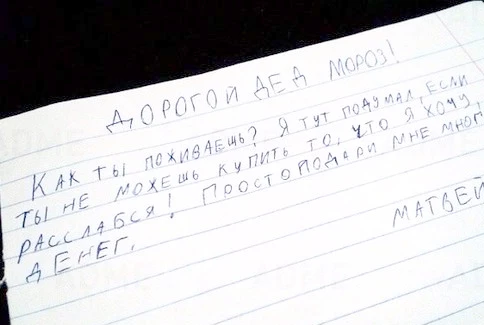 ДОРОГОЙ ДЕД МОРОЗ!
КАК ТЫ ПОЖИВАЕШЬ? Я ТУТ ПОДУМАЛ, ЕСЛИ
ТЫ НЕ МОЖЕШЬ КУПИТЬ ТО, ЧТО Я ХОЧУ,
РАССЛАБСЯ! ПРОСТО ПОДАРИ МНЕ МНОГ
ДЕНЕГ.
МАТВЕЙ